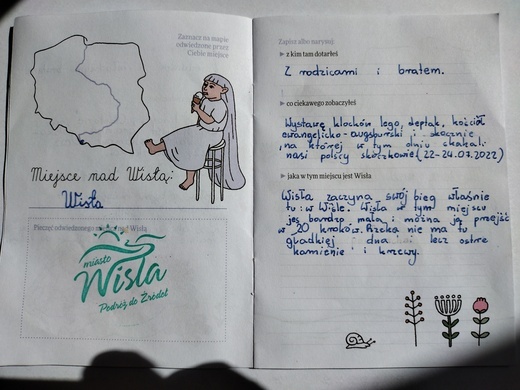 Zaznacz na mapie
odwiedzone przez
Ciebie miejsce
Miejsce nad Wisłą:
Wisła
Pieczęć odwiedzonego miejsca nad Wisłą
miasto
Wisła
Podróż do Źródeł
Zapisz albo narysuj:
z kim tam dotarłeś
Z rodzicami i bratem.
co ciekawego zobaczyłeś
Wystawę klocków lego, deptak, kościół
ewangelicko-augsburski i skocznie
,na której w tym dniu skakali
nasi polscy skoczkowie (22-24.07.2022)
jaka w tym miejscu jest Wisła
Wisła zaczyna swój bieg właśnie
tu: w Wiśle. Wisła w tym miejscu
jes bardzo mała i można ją przejść
w 20 kroków. Rzeka nie ma tu
gładkiej dna i lecz ostre
kamienie i krzewy.